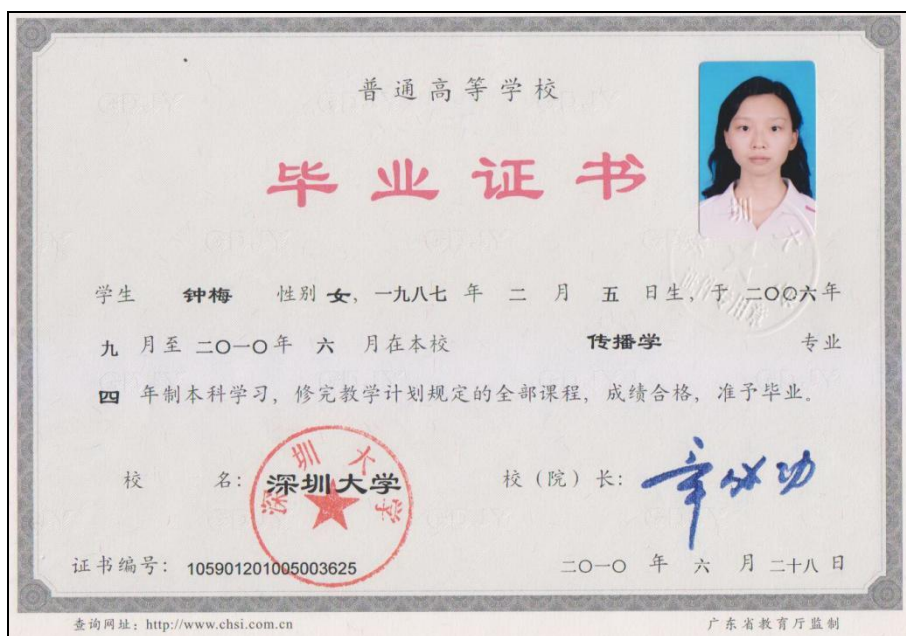 普通高等学校
毕业证书
学生 钟梅 性别 女，一九八七 年 二 月 五 日生，于 二〇〇六年
九 月至 二〇一〇年 六 月在本校 传播学 专业
四 年制本科学习，修完教学计划规定的全部课程，成绩合格，准予毕业。
校 名：深圳大学 校（院）长：章必功
深圳大学
证书编号：105901201005003625 二〇一〇 年 六 月 二十八 日
查询网址：http://www.chsi.com.cn 广东省教育厅监制